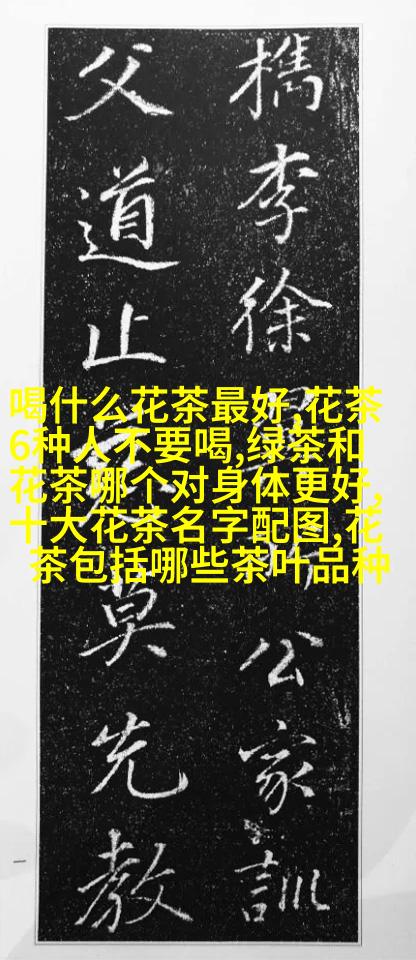 檇李徐公家訓
父道止莫先教
喝什么花茶最好,花茶
6种人不要喝,绿茶和
花茶哪个对身体更好,
十大花茶名字配图,花
茶包括哪些茶叶品种